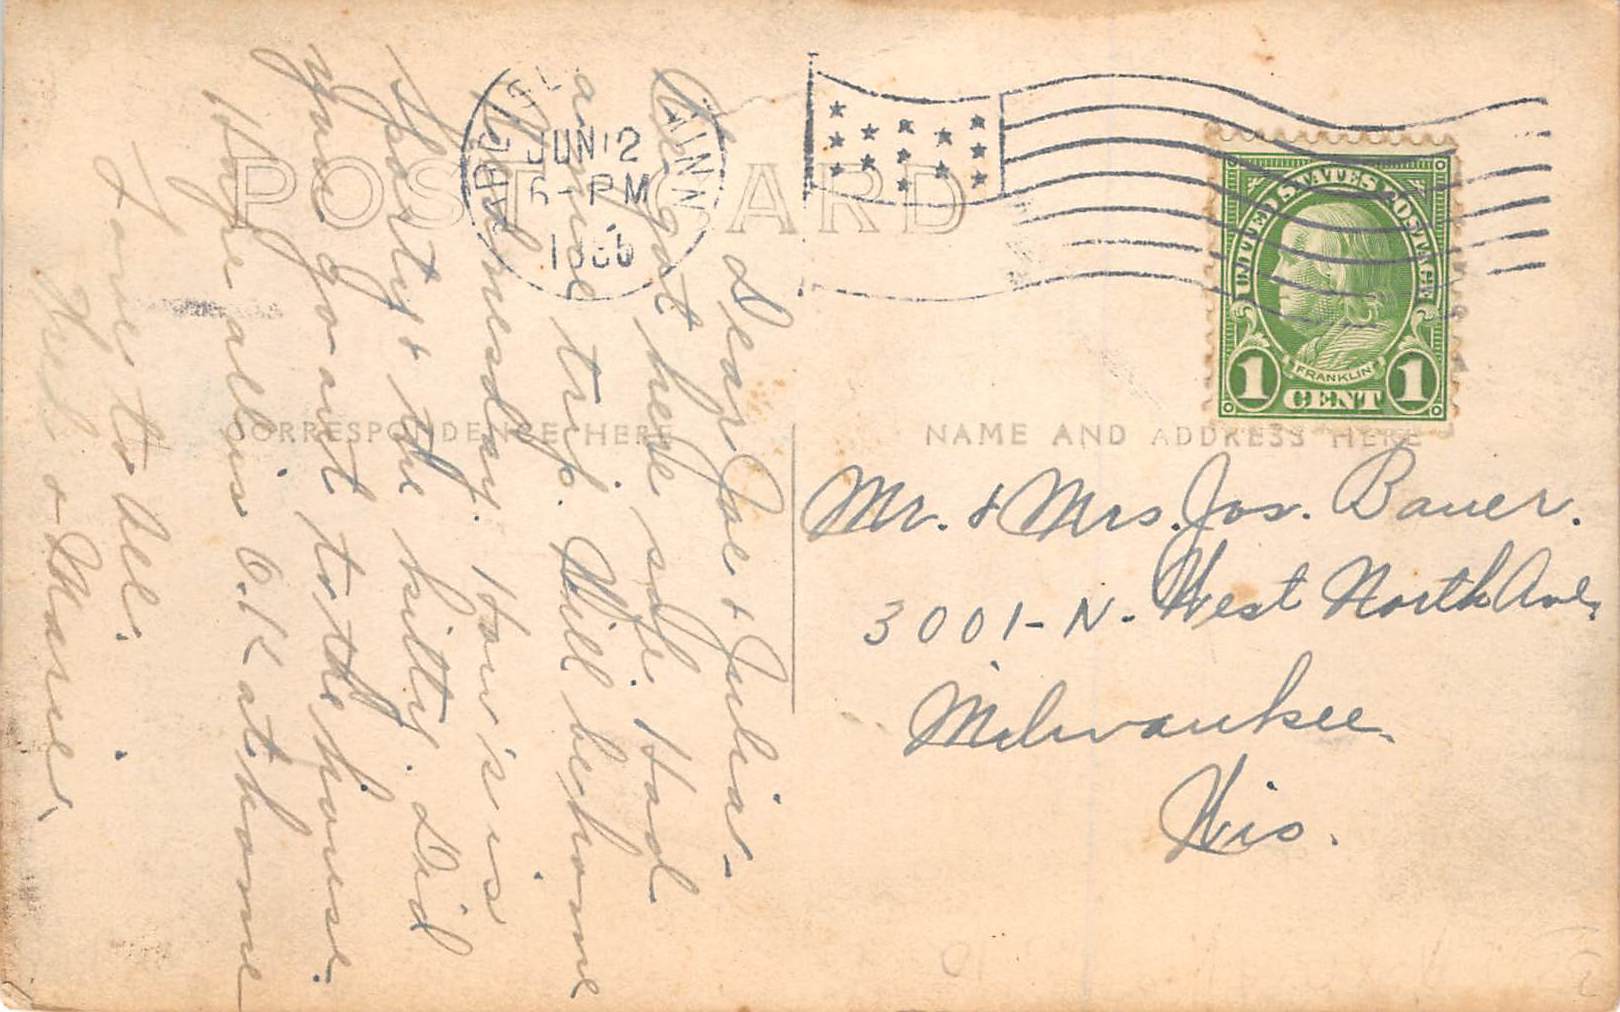 POST CARD
JUN 12
5-PM
MINN
UNITED STATES POSTAGE
FRANKLIN
1 CENT 1
CORRESPONDENCE HERE
NAME AND ADDRESS HERE
Dear Joe & Julia-
We got here safe. Had
a nice trip. Will be home
Wednesday. How's is
Sporty & the kitty. Did
you go out to the house.
Hope all is O.K at home
Love to all.
& Marie.
Mr. & Mrs. Jos. Bauer.
3001-N. West North Ave.
Milwaukee
Wis.